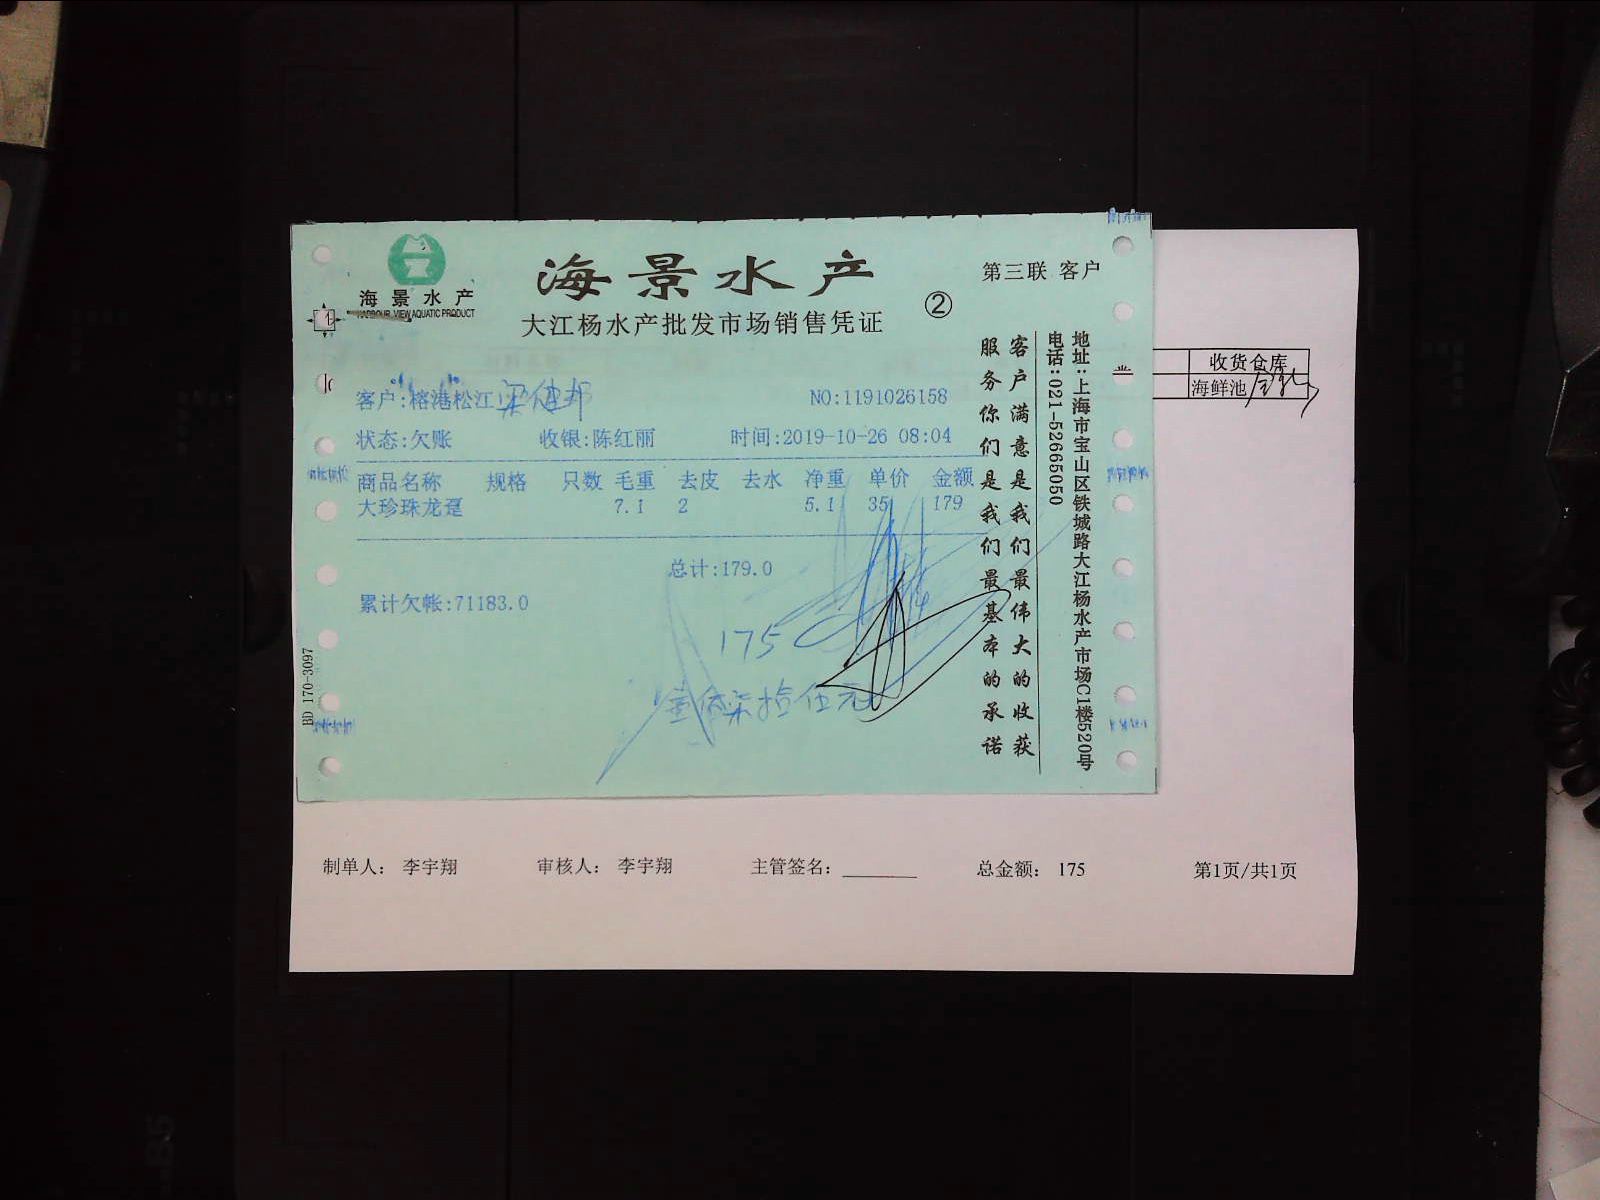 海景水产
HARBOUR VIEW AQUATIC PRODUCT
海景水产
大江杨水产批发市场销售凭证
②
第三联 客户
客户:榕港松江
NO:1191026158
状态:欠账 收银:陈红丽 时间:2019-10-26 08:04
商品名称 规格 只数 毛重 去皮 去水 净重 单价 金额
大珍珠龙趸 7.1 2 5.1 35 179
总计:179.0
累计欠帐:71183.0
175
壹佰柒拾伍元
BD 170-3097
客户满意是我们最伟大的收获
服务你们是我们最基本的承诺
地址:上海市宝山区铁城路大江杨水产市场C1楼520号
电话:021-52665050
收货仓库
海鲜池
制单人: 李宇翔 审核人: 李宇翔 主管签名: 总金额: 175 第1页/共1页